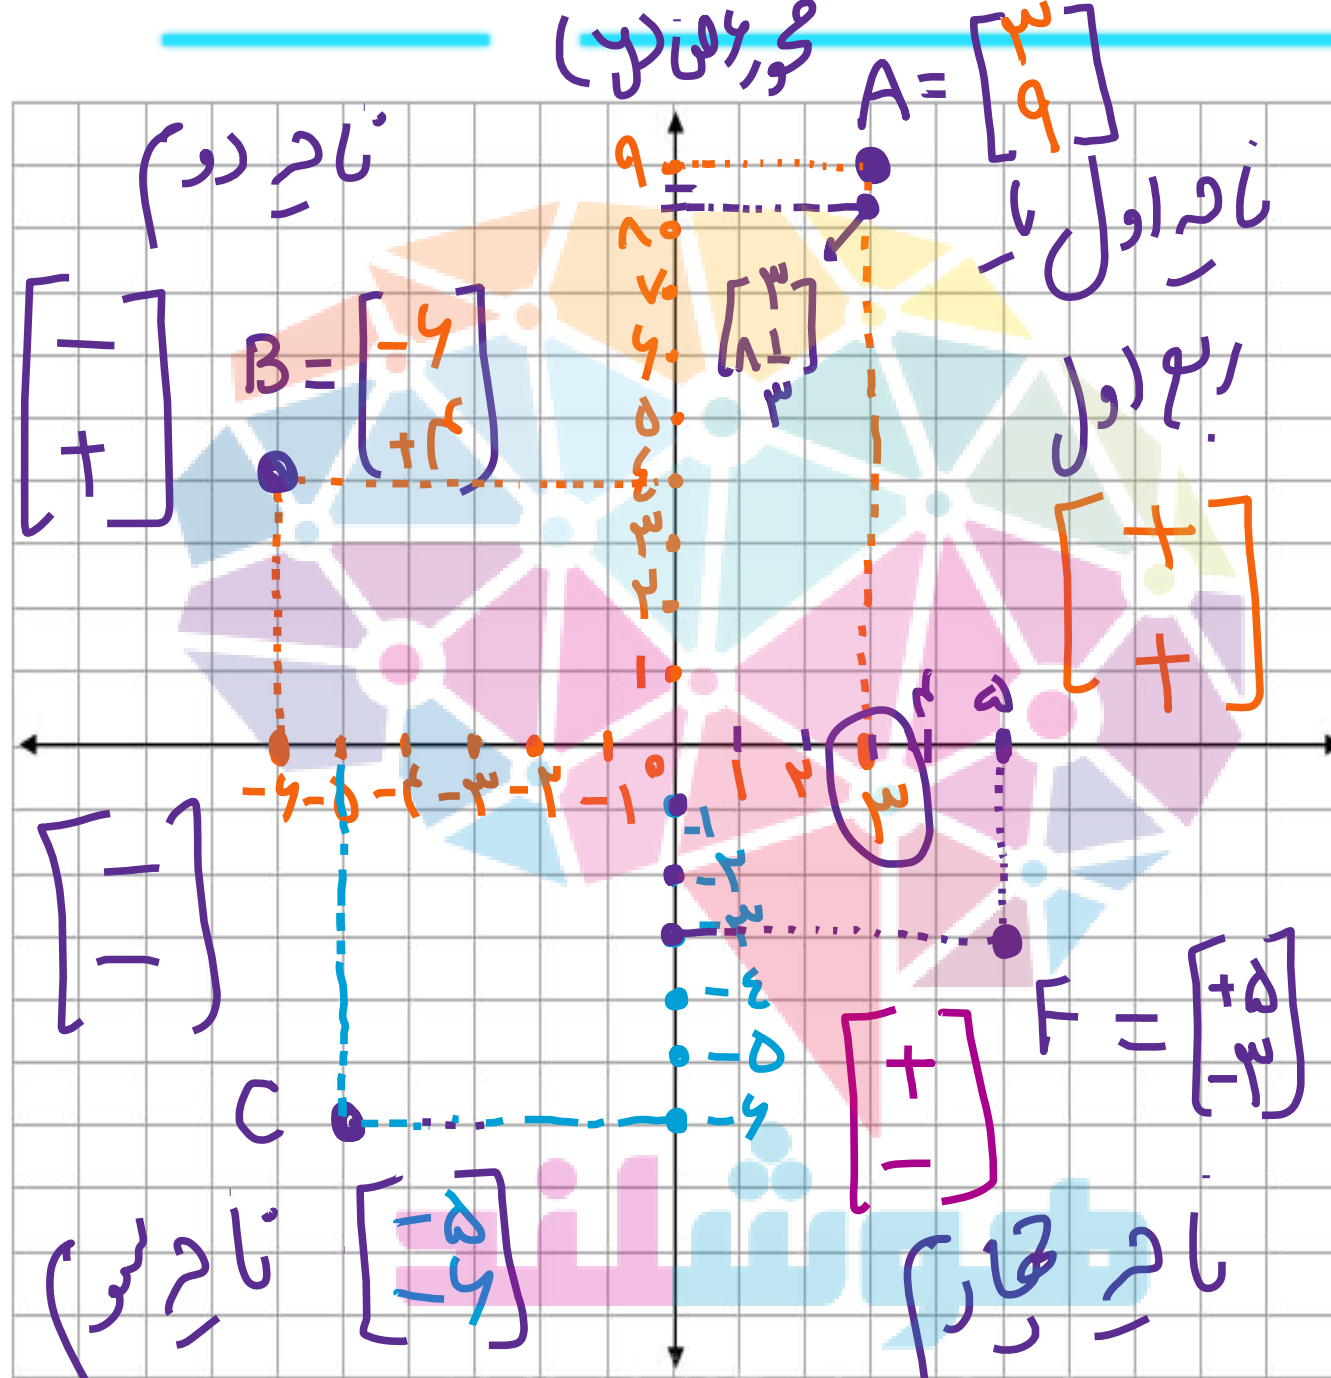 محور عرض (y)
A = [۳ ۹]
ناحیه دوم
ناحیه اول یا
ربع اول
[− +]
B = [−۶ +۴]
[+ +]
۹
۸
۷
۶
۵
۴
۳
۲
۱
[۳ ۸ ۱/۳]
۴ ۵
−۶ −۵ −۴ −۳ −۲ −۱ ۰ ۱ ۲ ۳
−۱
−۲
−۳
−۴
−۵
−۶
[− −]
F = [+۵ −۳]
[+ −]
C
[−۵ −۶]
ناحیه سوم
ناحیه چهارم
هوشسلند